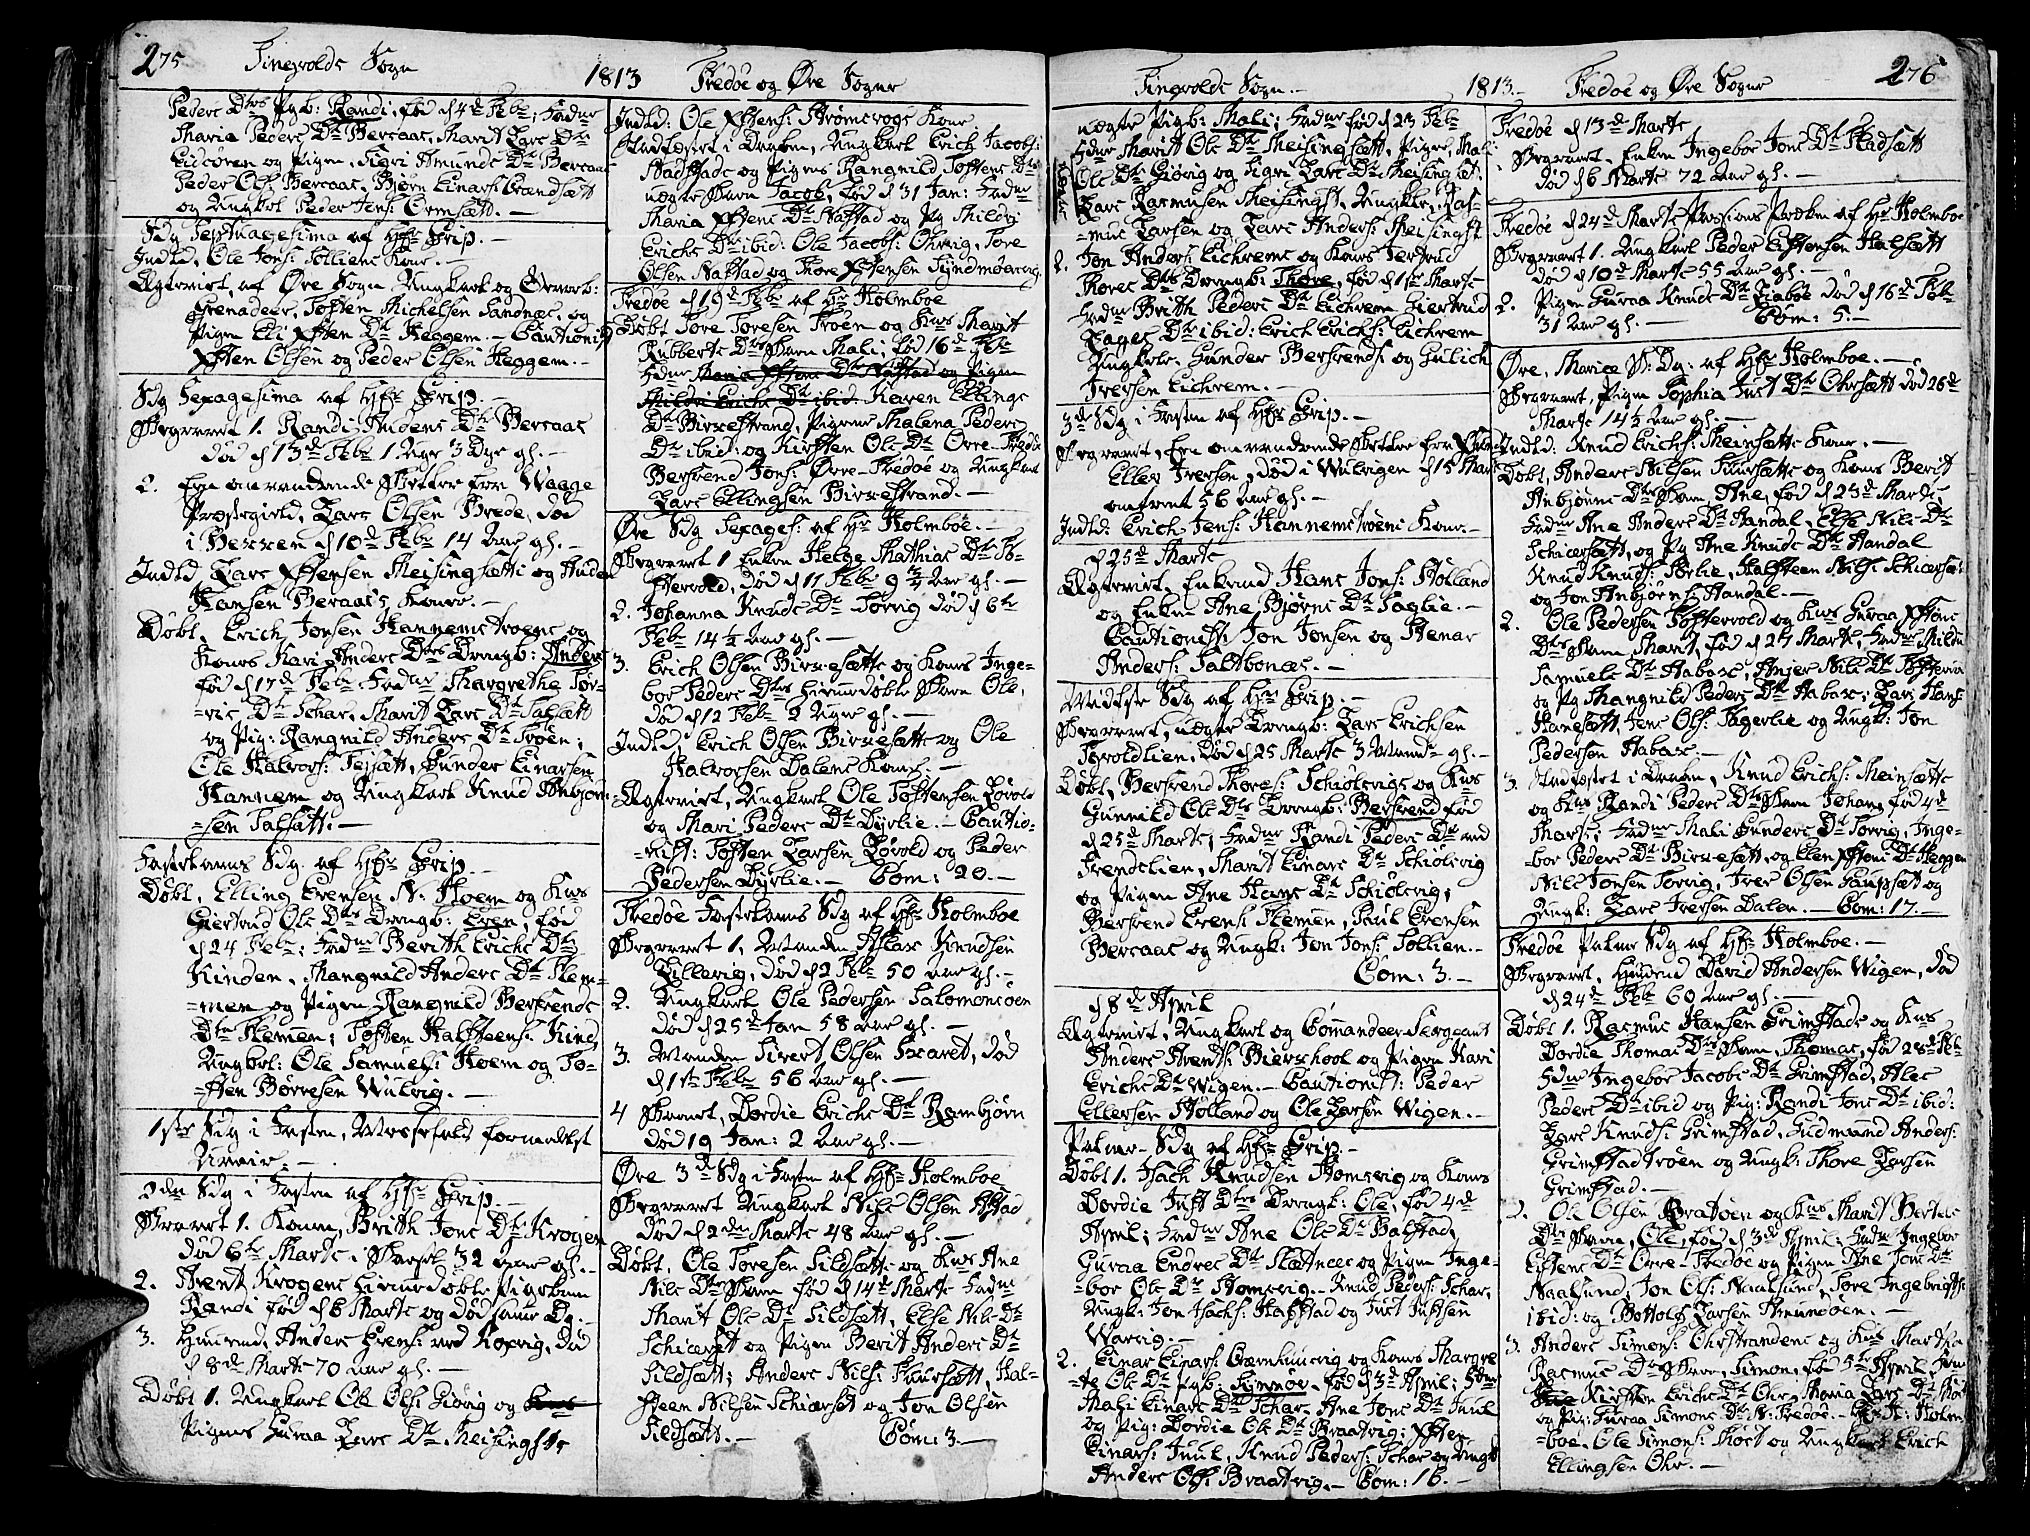 275 Tingvolds Sogn 1813 Fredöe og Øre Sogner
Peders Dtrs Pgb: Randi, fød d 4de Febr; Fadne
Maria Peders Dtr Bercaas, Marit Lars Dtr
Eidsören og Pigen, Sigri Amunds Dtr Bercaas
Peder Ols: Bercaas, Bjørn Einars: Brandsætt
og Ungkbl Peder Jens: Ormsætt. —
Sdg Septuagesima af Hr Grip. —
Indld, Ole Jons: Tolliens Kone. —
Ægteviet, af Øre Sogn Ungkarl og
Grenadeer, Tosten Michelsen Sandnæs, og
Pigen Eli Dtr Heggem. — Cautionist
Olsen og Peder Olsen Heggem. —
Sdg Sexagesima af Hr Grip. —
Begravet 1. Randi Audens Dtr Bercaas
død d 13de Febr 1 Uge 3 Dge gl. —
2. Een omvandrende Betler fra Waage
Præstegield, Lars Olsen Brede, død
i d 10de Febr 14 Aar gl. —
Indld Lars Meisingsætts og Auden
Hansen Bercaas's Koner. —
Døbt, Erich Jonsen Hannemstroens og
Kones Kari Anders Dtrs Drengb: Anders
fød d 17de Febr Fadne Margrethe
Dtr Schar, Marit Lars Dtr Talsætt
og Pig: Rangnild Anders Dtr Troen;
Ole Halvors: Teisætt, Gunder Einarsen
Hannem og Ungkarl Knud Anbjøn-
sen Talsætt. —
Fastelavns Sdg af Hr Grip
Døbt, Elling Evensen N: Hoem og Kns
Giertrud Ols Dtrs Drengb: Even, fød
d 24 Febr; Fadne Berith Erichs Dtr
Kinden, Mangnild Anders Dtr Flem-
men og Pigen Rangnild Bersvends
Dtr Flemen; Tosten Halsteens: Kind,
Ungkbl: Ole Samuels: Hoem og To-
sten Børresen Wulvig. —
1ste Sdg i Fasten, Messefald formedelst
Uveir. —
2den Sdg i Fasten af Hr Grip. —
Begravet 1. Konen, Brith Jons Dtr Krogen
død 6te Marts i Barsel 32 aar gl. —
2. Arent Krogens hiemedøbte Pigebarn
Randi fød d 6 Marts og død samme Dg. —
3. Anders Evens: ved Roxvig, død
d 8de Marts 70 aar gl. —
Døbt 1. Ungkarl Ole Ols: Giøvig og
Pigens Guraa Lars Dtr Meisingsets
Indld: Ole Strømsvogs Kone
Stadfæstet i Daaben, Ungkarl Erich Jacobs:
Stadstads og Pigens Rangnild Tostens Dtrs
uægte Barn Jacob, fød d 31 Jan: Fadne
Maria Dtr Naftad og Pg Mildri
Erichs Dtr ibid: Ole Jacobs: Ohrvig, Tore
Olsen Naftad og Thore
Fredöe d 19de Febr af Hr Holmboe
Døbt Tore Toresen Troen og Kns Marit
Rubberts Dtrs Barn Mali; fød 16de Febr
Fadne Maria Dtr Naftad og Pigen
Mildri Erichs Dtr ibid. Karen Ellings
Dtr Birkestrand, Pigerne Malena Peders
Dtr ibid: og Kirsten Ols Dtr Øvre-Fredöe
Bersvend Jons: Øvre-Fredöe og Ungkarl
Lars Ellingsen Birkestrand. —
Øre Sdg Sexages: af Hr Holmboe. —
Begravet 1 Enken Helge Mathias Dtr
død d 11 Febr 9 3/4 Aar gl. —
2. Johanna Knuds Dtr Torvig død d 6te
Febr 14 1/2 Aar gl. —
3. Erich Olsen Birkesætts og Kones Inge-
bor Peders Dtrs hiemmedøbte Barn Ole,
død d 12 Febr 2 Uger gl. —
Indld Erich Olsen Birkesætts og Ole
Halvorsen Dalens Koner. —
Ægteviet, Ungkarl Ole Tostensen Løvold
og Mari Peders Dtr Dyrlie. — Cautio-
nist: Tosten Larsen Løvold og Peder
Pedersen Dyrlie. — Com: 20. —
Fredöe Fastelavns Sdg af Hr Holmboe
Begravet 1. Manden Aslax Knudsen
Lillevig, død d 2 Febr 50 aar gl. —
2. Ungkarl Ole Pedersen Salomonsøen
død d 25de Jan 58 aar gl. —
3. Manden Sivert Olsen Sxaret, død
d 1ste Febr 56 Aar gl. —
4 Barnet, Dordie Erichs Dtr Rambjørn
død 19 Jan: 2 Aar gl. —
Øre 3de Sdg i Fasten af Hr Holmboe
Begravet Ungkarl Nils Olsen Astad
død d 2den Marts 48 aar gl. —
Døbt, Ole Toresen Sildsætts og Kns Ane
Nils Dtrs Barn fød d 14de Marts Fadne
Marit Ols Dtr Sildsætt, Else Nils Dtr
Schiærset og Pigen Berit Anders Dtr
Sildsætt; Anders Nils: Fursætt, Hal-
steen Nilsen Schiærset og Jon Olsen
Sildsætt. — Com: 3. —
Tingvolds Sogn. — 1813. — Fredöe og Øre Sogner 276
uægte Pigb: Mali; Fadne fød d 23 Feb
Fadne Marit Ols Dtr Meisingsætt, Pigen, Mali
Ols Dtr Giøvig og Sigri Lars Dtr Meisingset:
Lars Rasmusen Meisingst, Ungkbl, Ras-
mus Larsen og Lars Anders: Meisingst
2. Jon Anders: Eichrems og Kones Jertrud
Thores Dtrs Drengb: Thore, fød d 1ste Marts
Fadne Brith Peders Dtr Eichrem Giertrud
Dtr ibid: Erich Erichs: Eichrem
Ungkbl, Gunder Bersvends: og Gulich
Iversen Eichrem. —
3de Sdg i Fasten af Hr Grip. —
Begravet, Een omvandrende Betler fra
Elles Iversen, død i Wulvigen d 15 Marts
omtrent 56 aar gl. —
Indld: Erich Jens: Hannemstroens Kone. —
d 25de Marts
Ægteviet, Enkemd Hans Jons: Holland
og Enken Ane Bjørns Dtr Faglie. —
Cautionist: Jon Jonsen og Stenar
Anders: Saltbonæs. —
Midfaste Sdg af Hr Grip. —
Begravet, uægte Drengb: Lars Erichsen
Tevoldlien, død d 25 Marts 3 Maand: gl. —
Døbt, Bersvend Thores: Schiolsvigs og Kns
Gunnild Ols Dtrs Drengb: Bersvend, fød
d 25de Marts; Fadne Randi Peders Dtr ved
Trendelien, Marit Einars Dtr Schiolsvig
og Pigen Ane Hans Dtr Schiolsvig;
Bersvend Evens: Flemen, Poul Evensen
Bercaas og Ungk: Jon Jons: Tollien. —
Com: 3. —
d 8de April
Ægteviet, Ungkarl og Commandeer Sergeant
Anders Arents: Bierschool og Pigen Kari
Erichs Dtr Wigen. — Cautionist: Peder
Ellersen Holland og Ole Larsen Wigen. —
Palme-Sdg af Hr Grip. —
Døbt 1. Isach Knudsen Homsvig og Kones
Dordie Just Dtrs Drengb: Ole, fød 4de
April; Fadne Ane Ols Dtr Balstad,
Guraa Endres Dtr Slætnæs og Pigen Inge-
bor Ols Dtr Homsvig. Knud Peders: Schar,
Ungk: Jon Isachs: Hafstad og Just Justsen
Warvig. —
2. Einar Einars: Bærhuusvig og Kones Margre-
te Ols Dtr Pgb: Synnøv, fød d 3de April; Fadne
Mali Einars Dtr Schar, Ane Jons Dtr Juul
og Pig: Dordie Ols Dtr Braatvig;
Einars: Juul, Knud Peders: Schar og Ungk
Anders Ols: Braatvig. — Com: 16. —
Fredöe d 13de Marts
Begravet, Enken Ingebor Jons Dtr Stadsætt
død d 6 Marts 72 aar gl. —
Fredöe d 24de Marts Passions Præken af Hr Holmboe
Begravet 1. Ungkarl Peder Halsætt
død d 10de Marts 55 Aar gl. —
2. Pigen Guraa Knuds Dtr død d 16de Febr
31 Aar gl. — Com: 5. —
Øre, Mariæ B: Dg: af Hr Holmboe. —
Begravet, Pigen Sophia Just Dtr Ohrsætt død 26de
Marts 14 1/2 Aar gl. —
Indld: Knud Erichs: Meinsætts Kone. —
Døbt, Anders Nilsen Fursætts og Kones Berit
Anbjøns Dtrs Barn Ane, fød d 23de Marts;
Fadne Ane Anders Dtr Aandal, Else Nils Dtr
Schiærsætt, og Pg Ane Knuds Dtr Aandal
Knud Knuds: Børlie, Halsteen Nils: Schiærsæt
og Jon Anbjøns: Aandal. —
2. Ole Pedersen Tostervold og Kns Guraa
Dtrs Barn Marit, fød d 27 Marts; Fadne Mildri
Samuels Dtr Aabax, Nils Dtr
og Pg Mangnild Peders Dtr Aabax; Lars Hans:
Hansætt, Jens Ols: Fagerlie og Ungk: Jon
Pedersen Aabax. —
3. Stadfæstet i Daaben, Knud Erichs: Meinsætts
og Kns Randi Peders Dtrs Barn Johan, fød 4de
Marts; Fadne Mali Gunders Dtr Torvig, Inge-
bor Peders Dtr Birkesætt, og Elen Dtr Heggem
Nils Jonsen Torvig, Iver Olsen og
Ungk: Lars Iversen Dalen. — Com: 17. —
Fredöe Palme Sdg af Hr Holmboe. —
Begravet, Huusmd David Andersen Wigen, død
d 24de Febr 60 Aar gl. —
Døbt 1. Rasmus Hansen Grimstads og Kns
Dordie Thomas Dtrs Barn, Thomas, fød 28de Feb
Fadne Ingebor Jacobs Dtr Grimstad, Ales
Peders Dtr ibid og Pig: Randi Jons Dtr ibid:
Lars Knuds: Grimstad, Gudmund Anders:
Grimstadtrøen og Ungk: Thore Larsen
Grimstad. —
2. Ole Olsen Bratøen og Kns Marit Bertels
Dtrs Barn, Ole, fød d 3de April; Fadne Ingebor
Dtr Øvre-Fredöe og Pigen Ane Jons Dtr
Naalsund, Jon Ols: Naalsund, Tore Ingebrigts:
ibid: og Bottolf Larsen Amundøen. —
3. Anders Simons: Ohrstrandens og Kns Marta
Rasmus Dtr Barn, Simon, fød 5te April, Fadne
Kirsten Erichs Dtr Ohr, Maria Lars Dtr
og Pig: Guraa Simons Dtr N: Fredöe. — Hr A: Holm-
boe, Ole Simons: og Ungkarl Erich
Ellingsen Ohr. —